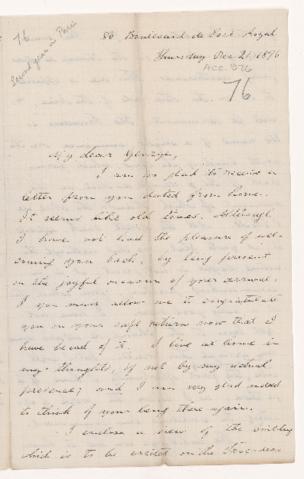 76
Second year in Paris
80 Boulevard de Port Royal
Thursday Dec 21/1876
ACC. 876
76
My dear George,
I am so glad to receive a
letter from you dated from home.
It seems like old times. Although
I have not had the pleasure of wel-
coming you back, by being present
on the joyful occasion of your arrival,
you must allow me to congratulate
you on your safe return now that I
have heard of it. I live at home in
my thoughts, if not by my actual
presence; and I am very glad indeed
to think of your being there again.
I enclose a view of the building
which is to be erected on the Trocadero